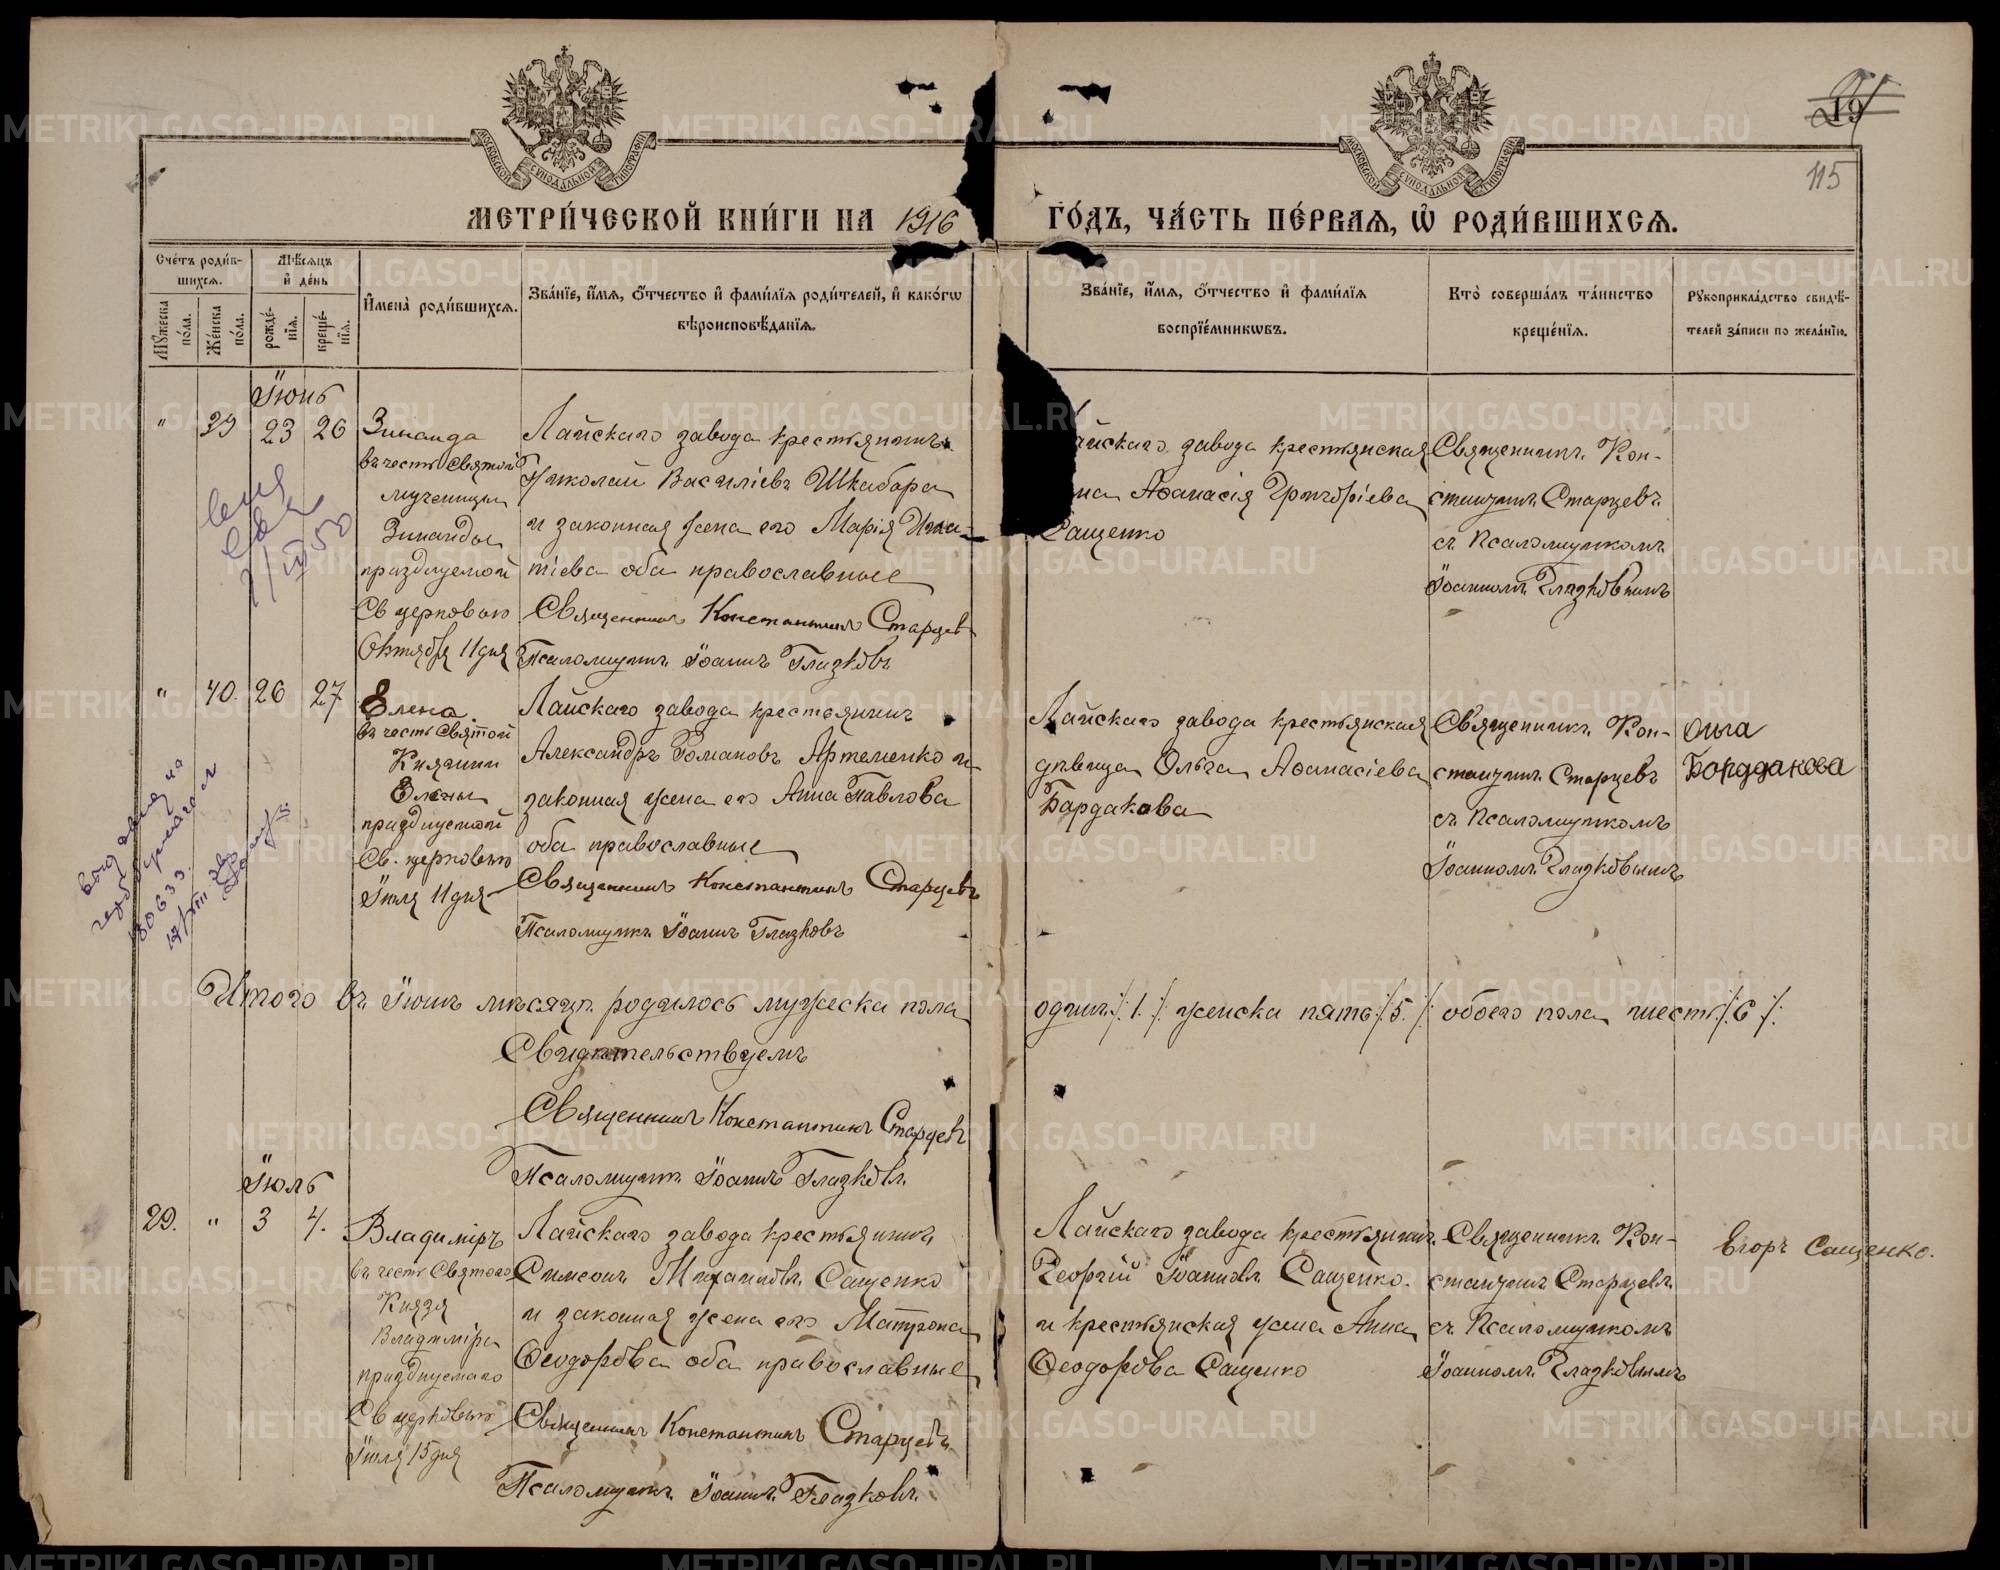 19
115
МОСКОВСКОЙ СѴНОДАЛЬНОЙ ТИПОГРАФІИ
МОСКОВСКОЙ СѴНОДАЛЬНОЙ ТИПОГРАФІИ
МЕТРИ́ЧЕСКОЙ КНИ́ГИ НА 1916 ГО́ДЪ, ЧА́СТЬ ПЕ́РВАЯ, Ѡ҆ РОДИ́ВШИХСЯ.
Сче́тъ роди́в-
шихся.
Мѣ́сяцъ
и҆ де́нь
Му́жеска
по́ла.
Же́нска
по́ла.
рожде́-
нїя.
креще́-
нїя.
И҆мена̀ роди́вшихся.
Зва́нїе, и҆́мя, о҆́тчество и҆ фами́лїя роди́телей, и҆ како́гѡ
вѣроисповѣ́данїя.
Зва́нїе, и҆́мя, о҆́тчество и҆ фами́лїя
воспрїе́мникѡвъ.
Кто̀ соверша́лъ та́инство
креще́нїя.
Рукоприкла́дство свидѣ́-
телей за́писи по жела́нїю.
Іюнь
" 39 23 26
Зинаида
въ честь Святой
мученицы
Зинаиды
празднуемой
Св церковью
Октября 11 дня
Лайскаго завода крестьянинъ
Николай Василіевъ Шкабара
и законная жена его Марія Игна-
тіева оба православные
Священникъ Константинъ Старцевъ
Псаломщикъ Іоаннъ Глазковъ
айскаго завода крестьянская
на Аѳанасія Григоріева
Сащенко
Священникъ Кон-
стантинъ Старцевъ
съ Псаломщикомъ
Іоанномъ Глазковымъ
" 40. 26 27
Елена
въ честь Святой
Княгини
Елены
празднуемой
Св. церковью
Іюля 11 дня
Лайскаго завода крестьянинъ
Александръ Романовъ Артеменко и
законная жена его Анна Павлова
оба православные
Священникъ Константинъ Старцевъ
Псаломщикъ Іоаннъ Глазковъ
Лайскаго завода крестьянская
дѣвица Ольга Аѳанасіева
Бардакова
Священникъ Кон-
стантинъ Старцевъ
съ Псаломщикомъ
Іоанномъ Глазковымъ
Ольга
Бордакова
Итого въ Іюнѣ мѣсяцѣ родилось мужеска пола одинъ ./. 1 ./. женска пять ./. 5 ./. обоего пола шесть ./. 6 ./.
Свидѣтельствуемъ
Священникъ Константинъ Старцевъ
Псаломщикъ Іоаннъ Глазковъ.
Іюль
29. " 3 4.
Владиміръ
въ честь Святого
Князя
Владиміра
празднуемаго
Св церковью
Іюля 15 дня
Лайскаго завода крестьянинъ
Симеонъ Михаиловъ Сащенко
и законная жена его Матрона
Ѳеодорова оба православные
Священникъ Константинъ Старцевъ
Псаломщикъ Іоаннъ Глазковъ.
Лайскаго завода крестьянинъ
Георгій Іоанновъ Сащенко.
и крестьянская жена Анна
Ѳеодорова Сащенко
Священникъ Кон-
стантинъ Старцевъ
съ Псаломщикомъ
Іоанномъ Глазковымъ
Егоръ Сащенко.
METRIKI.GASO-URAL.RU